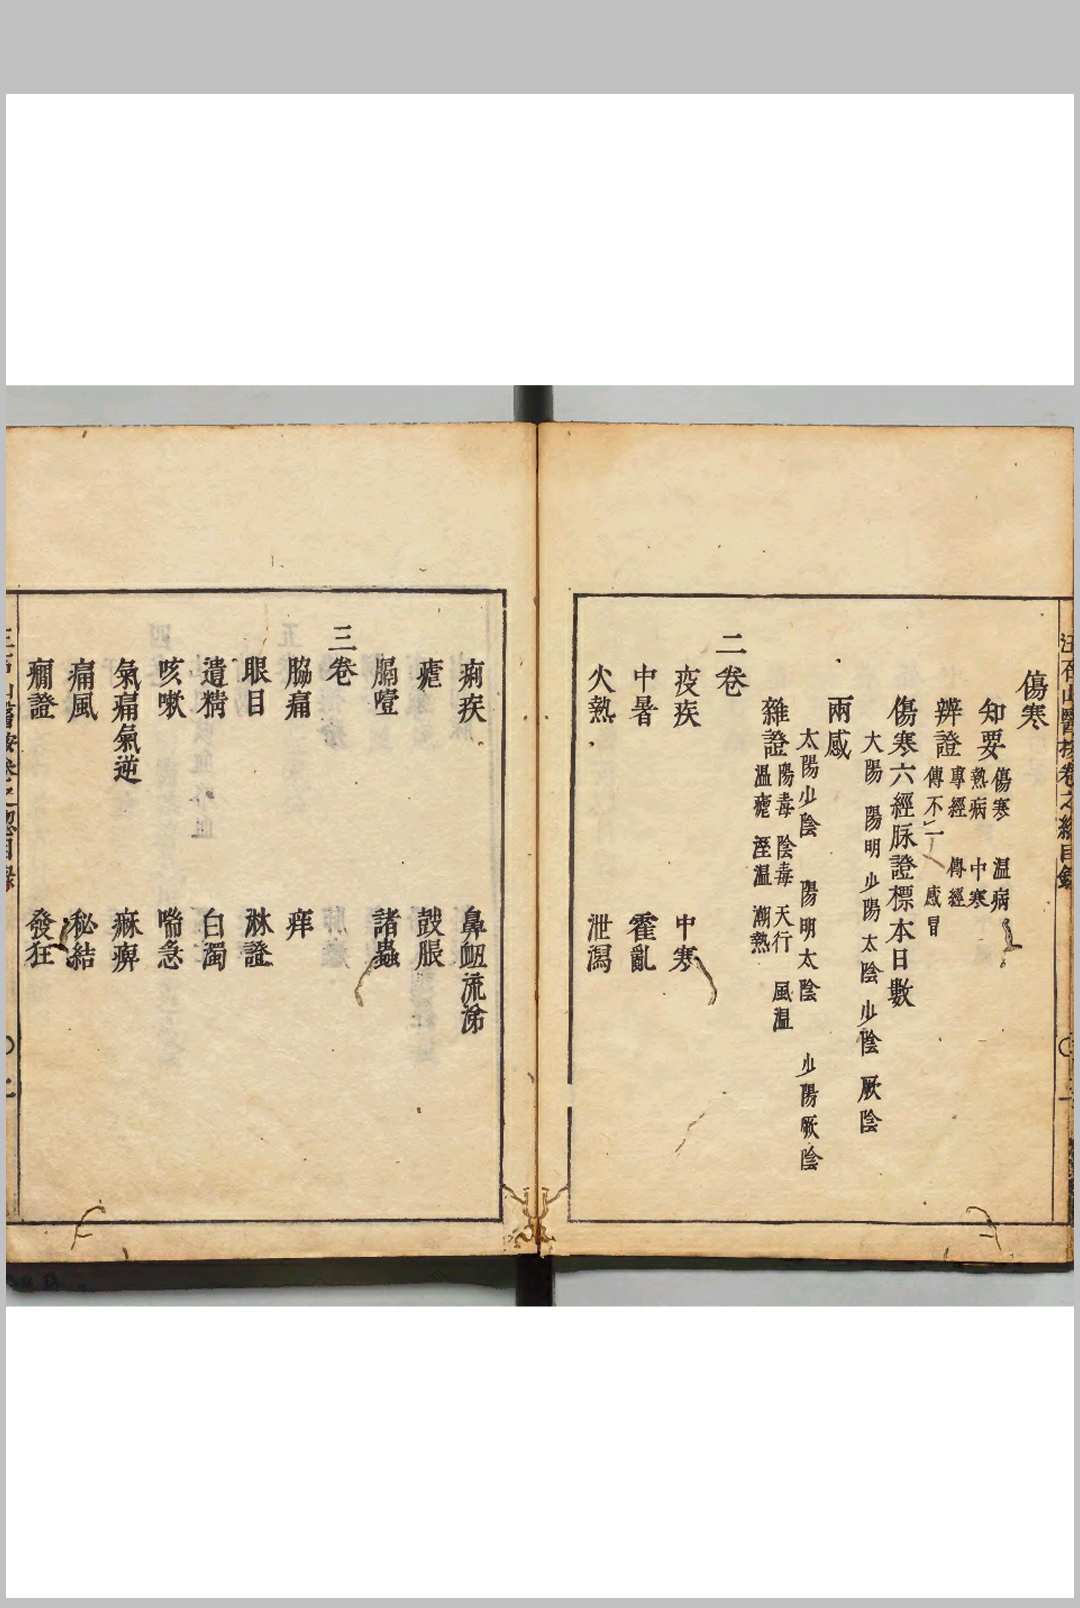 汪石山醫按卷之總目錄
傷寒
知要 傷寒 温病
熱病 中寒
辨證 專經 傳經
傳不一 感冒
傷寒六經脉證標本日數
太陽 陽明 少陽 太陰 少陰 厥陰
兩感
太陽少陰 陽明太陰 少陽厥陰
雜證 陽毒 陰毒 天行 風温
温瘧 溼温 潮熱
二卷
疫疾 中寒
中暑 霍亂
火熱 泄瀉
痢疾 鼻衄流涕
瘧 鼓脹
膈噎 諸蟲
三卷
脇痛 痒
眼目 淋證
遺精 白濁
咳嗽 喘急
氣痛氣逆 麻痹
痛風 秘結
癇證 發狂